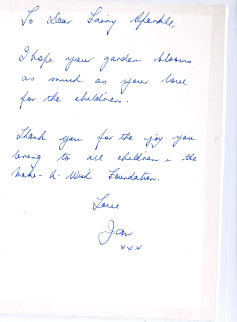 To Dear Fairy Sparkle,
I hope your garden blooms
as much as your love
for the children.
Thank you for the joy you
bring to all children & the
Make-A-Wish Foundation.
Love
Jan
xxx